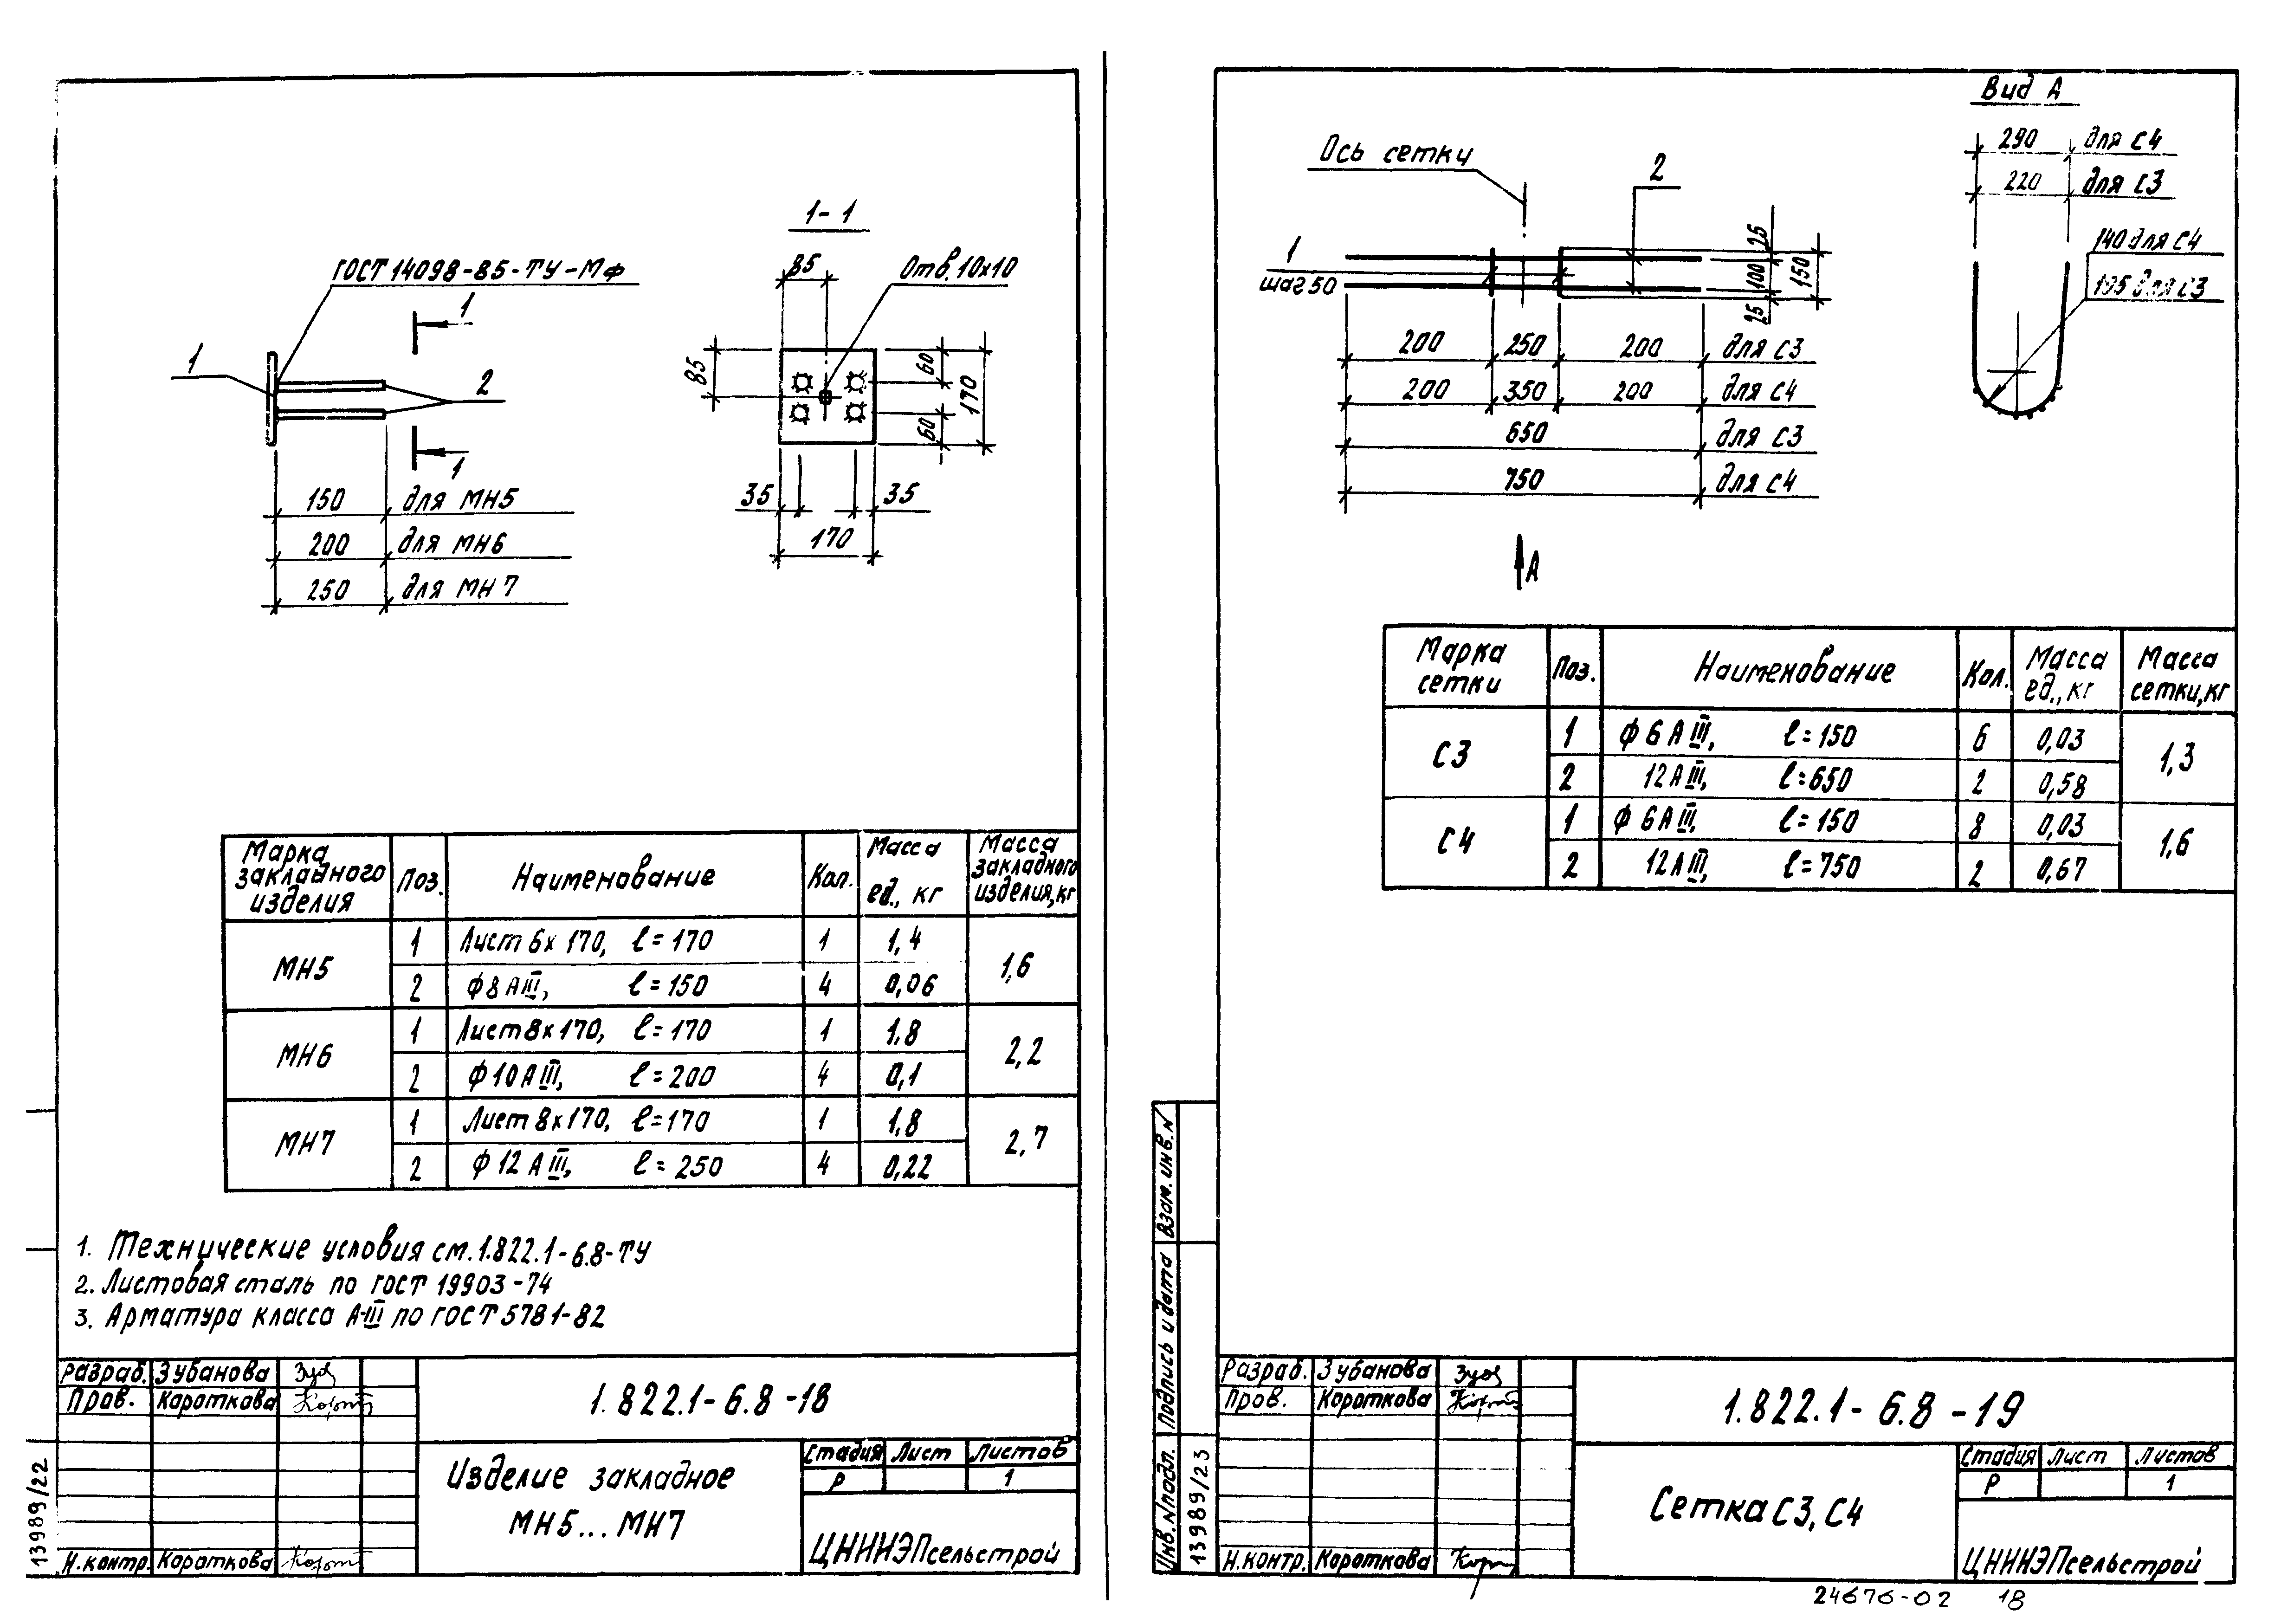 ГОСТ 14098-85-ТУ-Мф
1
1
1
2
150 для МН5
200 для МН6
250 для МН7
1-1
85
Отв. 10х10
85
60
60
170
35
35
170
Марка закладного изделия Поз. Наименование Кол. Масса ед., кг Масса закладного изделия, кг
МН5 1 Лист 6х170, ℓ=170 1 1,4 1,6
2 ф8АIII, ℓ=150 4 0,06
МН6 1 Лист 8х170, ℓ=170 1 1,8 2,2
2 ф10АIII, ℓ=200 4 0,1
МН7 1 Лист 8х170, ℓ=170 1 1,8 2,7
2 ф12АIII, ℓ=250 4 0,22
1. Технические условия см. 1.822.1-6.8-ТУ
2. Листовая сталь по ГОСТ 19903-74
3. Арматура класса А-III по ГОСТ 5781-82
Разраб. Зубанова Зуб
Пров. Короткова Корот
Н.контр. Короткова Корот
1.822.1-6.8-18
Изделие закладное
МН5...МН7
Стадия Лист Листов
Р 1
ЦНИИЭПсельстрой
13989/22
Вид А
290 для С4
220 для С3
140 для С4
Ось сетки
2
1
шаг 50
25
100
25
150
200 250 200 для С3
200 350 200 для С4
650 для С3
750 для С4
А
Марка сетки Поз. Наименование Кол. Масса ед., кг Масса сетки, кг
С3 1 ф6АIII, ℓ=150 6 0,03 1,3
2 12АIII, ℓ=650 2 0,58
С4 1 ф6АIII, ℓ=150 8 0,03 1,6
2 12АIII, ℓ=750 2 0,67
Взам. инв. N
Подпись и дата
Инв. N подл.
13989/23
Разраб. Зубанова Зуб
Пров. Короткова Корот
Н.контр. Короткова Корот
1.822.1-6.8-19
Сетка С3, С4
Стадия Лист Листов
Р 1
ЦНИИЭПсельстрой
24676-02 18